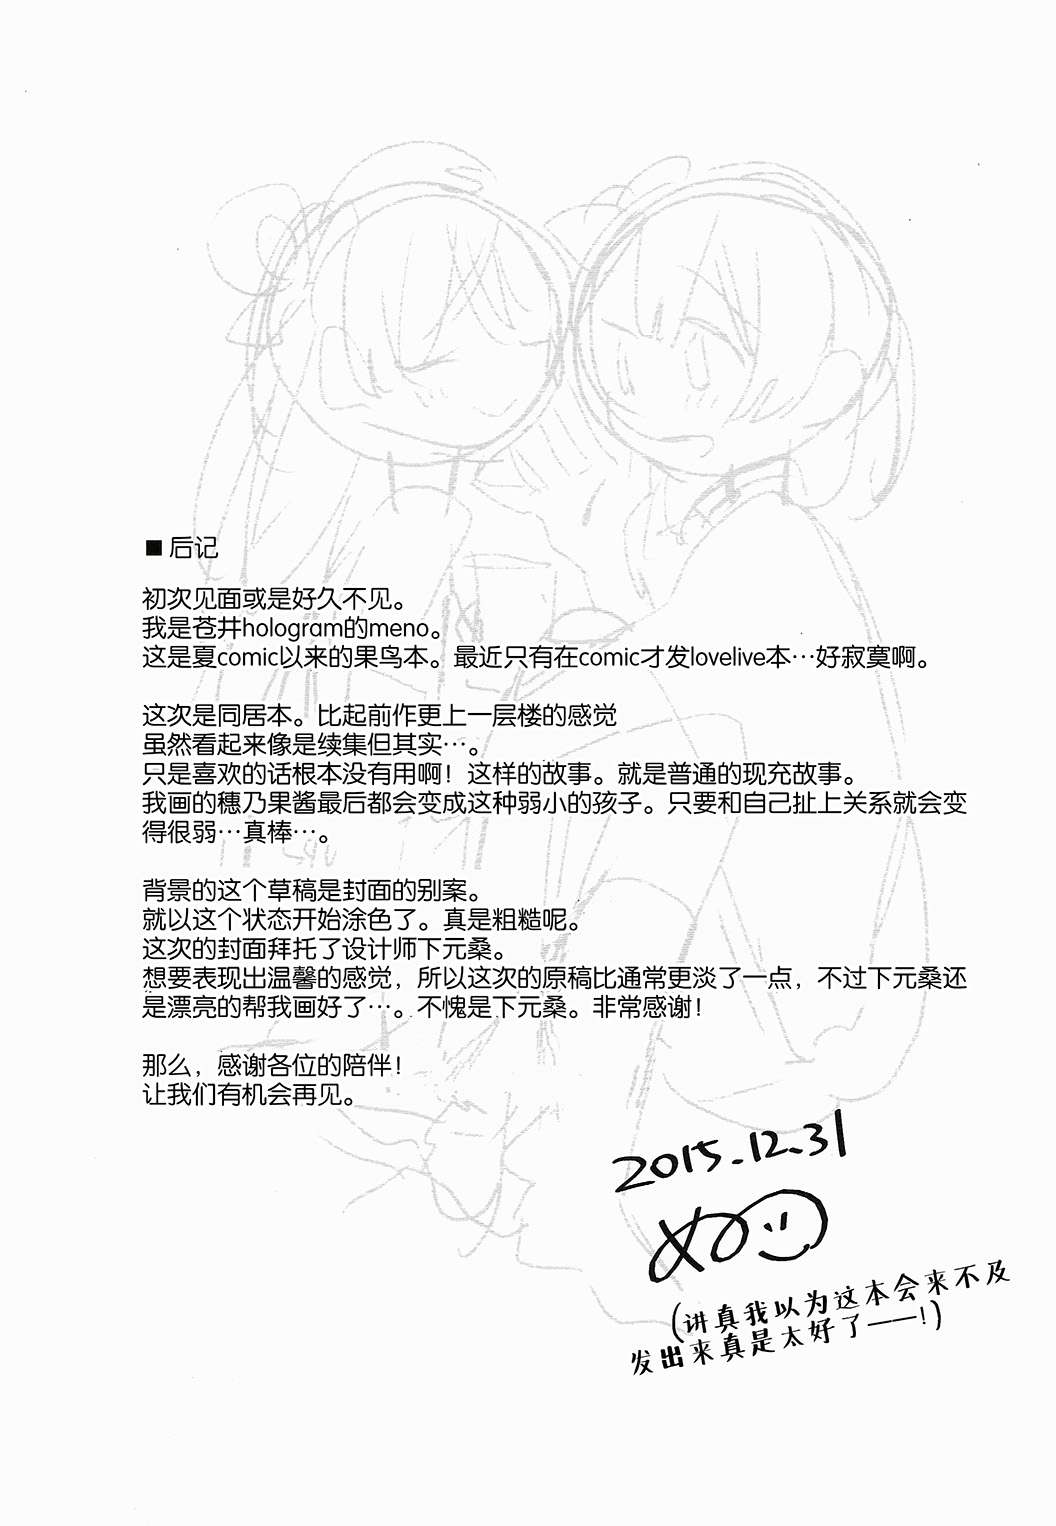 ■后记
初次见面或是好久不见。
我是苍井hologram的meno。
这是夏comic以来的果鸟本。最近只有在comic才发lovelive本…好寂寞啊。
这次是同居本。比起前作更上一层楼的感觉
虽然看起来像是续集但其实…。
只是喜欢的话根本没有用啊！这样的故事。就是普通的现充故事。
我画的穗乃果酱最后都会变成这种弱小的孩子。只要和自己扯上关系就会变
得很弱…真棒…。
背景的这个草稿是封面的别案。
就以这个状态开始涂色了。真是粗糙呢。
这次的封面拜托了设计师下元桑。
想要表现出温馨的感觉，所以这次的原稿比通常更淡了一点，不过下元桑还
是漂亮的帮我画好了…。不愧是下元桑。非常感谢！
那么，感谢各位的陪伴！
让我们有机会再见。
2015.12.31
(讲真我以为这本会来不及
发出来真是太好了——！)